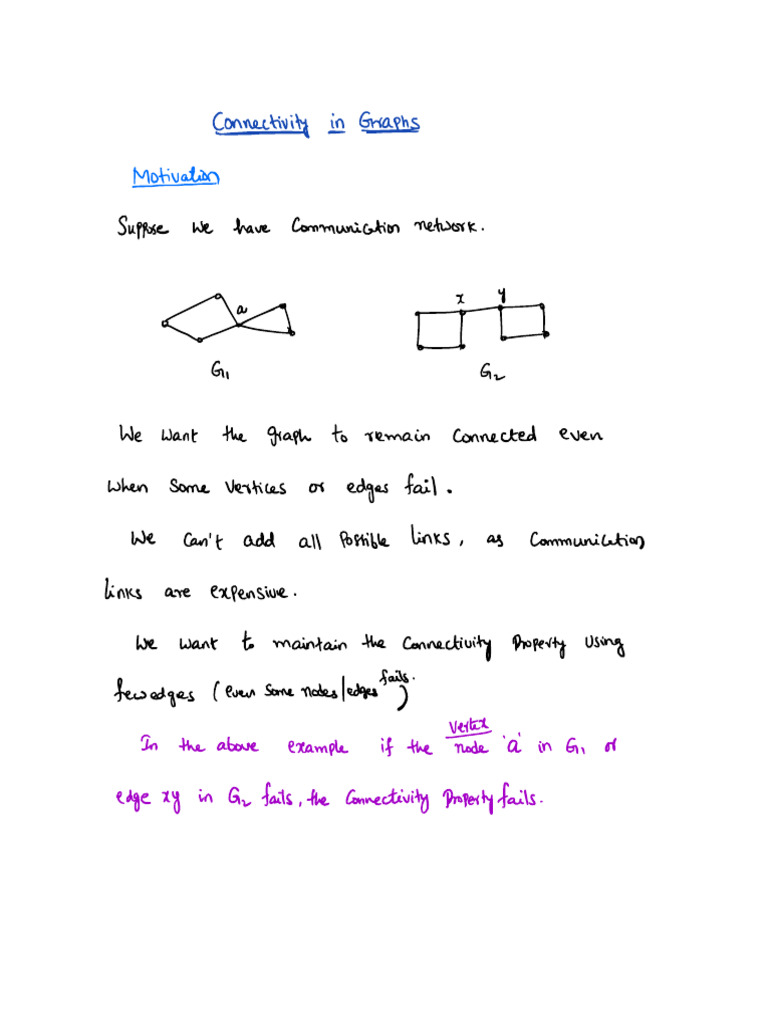 Connectivity in Graphs
Motivation
Suppose we have Communication network.
a
x y
G1
G2
We want the graph to remain connected even
when some vertices or edges fail.
We can't add all possible links, as communication
links are expensive.
We want to maintain the connectivity property using
few edges (even some nodes/edges fails.)
In the above example if the vertex node 'a' in G1 or
edge xy in G2 fails, the connectivity property fails.